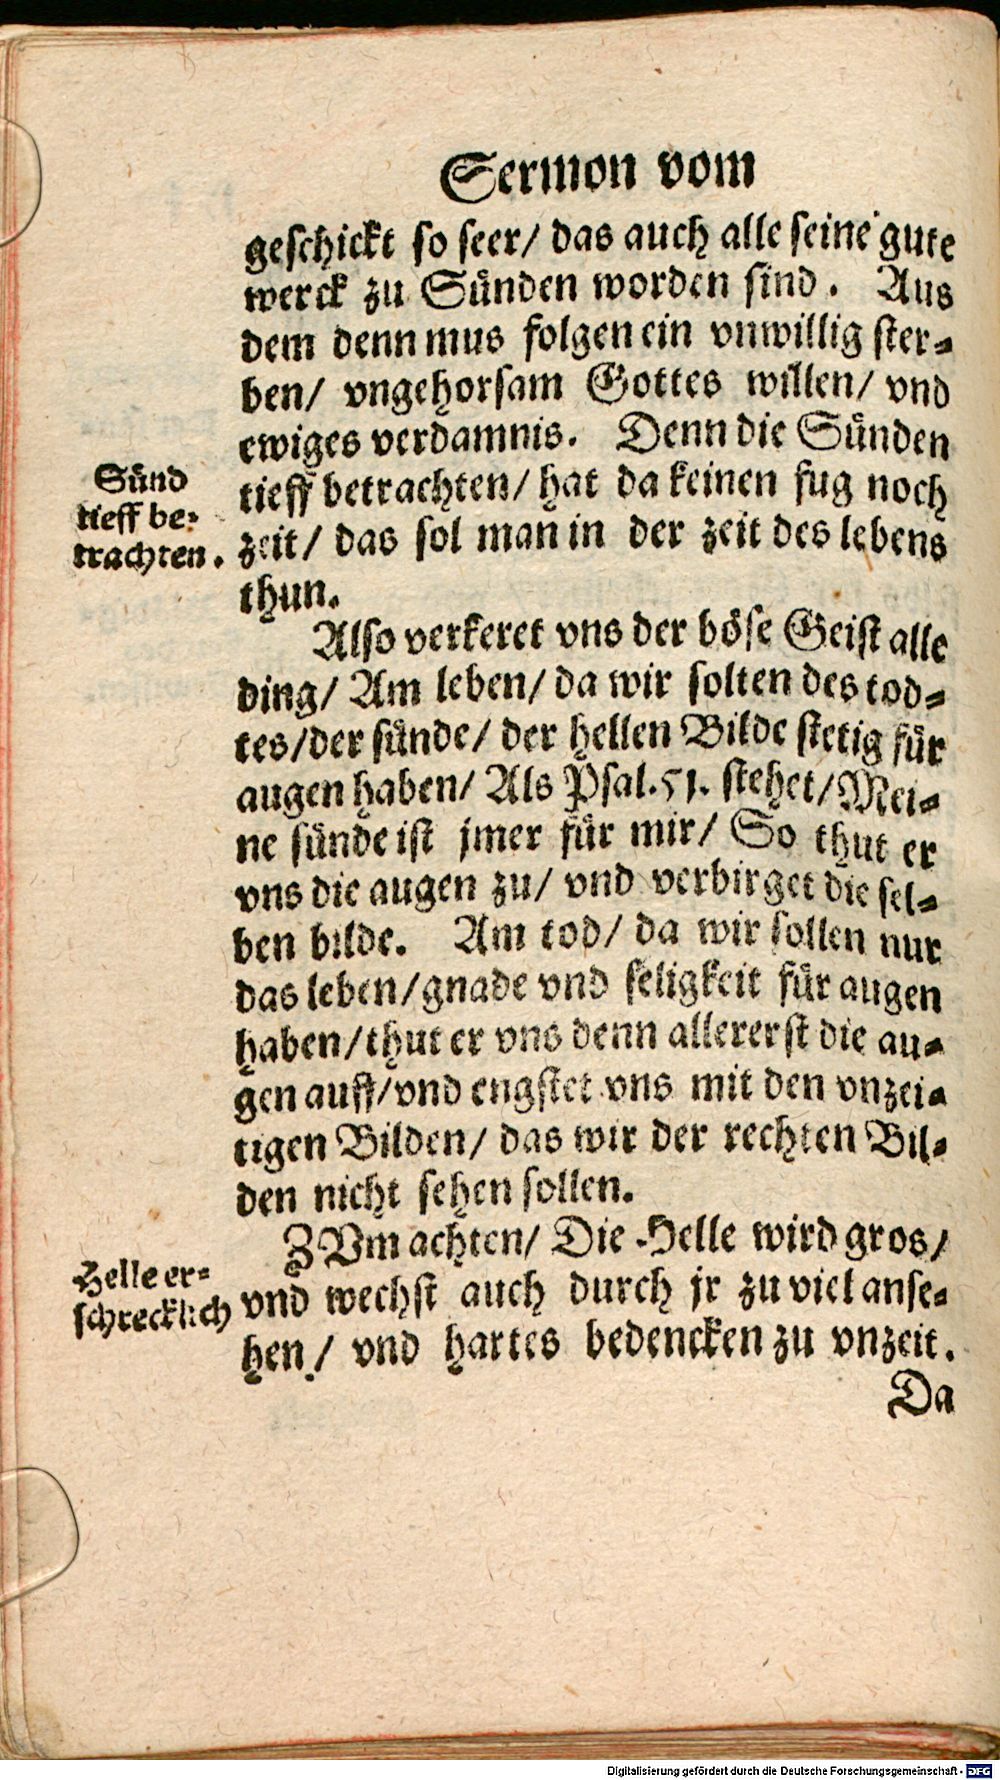 Sermon vom
geschickt so seer/ das auch alle seine gute
werck zu Sünden worden sind. Aus
dem denn mus folgen ein vnwillig ster⸗
ben/ vngehorsam Gottes willen/ vnd
ewiges verdamnis. Denn die Sünden
tieff betrachten/ hat da keinen fug noch
zeit/ das sol man in der zeit des lebens
thun.
Sünd
tieff be⸗
trachten.
Also verkeret vns der böse Geist alle
ding/ Am leben/ da wir solten des tod⸗
tes/der sünde/ der hellen Bilde stetig für
augen haben/ Als Psal.51. stehet/Mei⸗
ne sünde ist jmer für mir/ So thut er
vns die augen zu/ vnd verbirget die sel⸗
ben bilde. Am tod/ da wir sollen nur
das leben/gnade vnd seligkeit für augen
haben/thut er vns denn allererst die au⸗
gen auff/vnd engstet vns mit den vnzei⸗
tigen Bilden/ das wir der rechten Bil⸗
den nicht sehen sollen.
ZVm achten/ Die Helle wird gros/
vnd wechst auch durch jr zu viel anse⸗
hen/ vnd hartes bedencken zu vnzeit.
Helle er⸗
schrecklich
Da
Digitalisierung gefördert durch die Deutsche Forschungsgemeinschaft - DFG